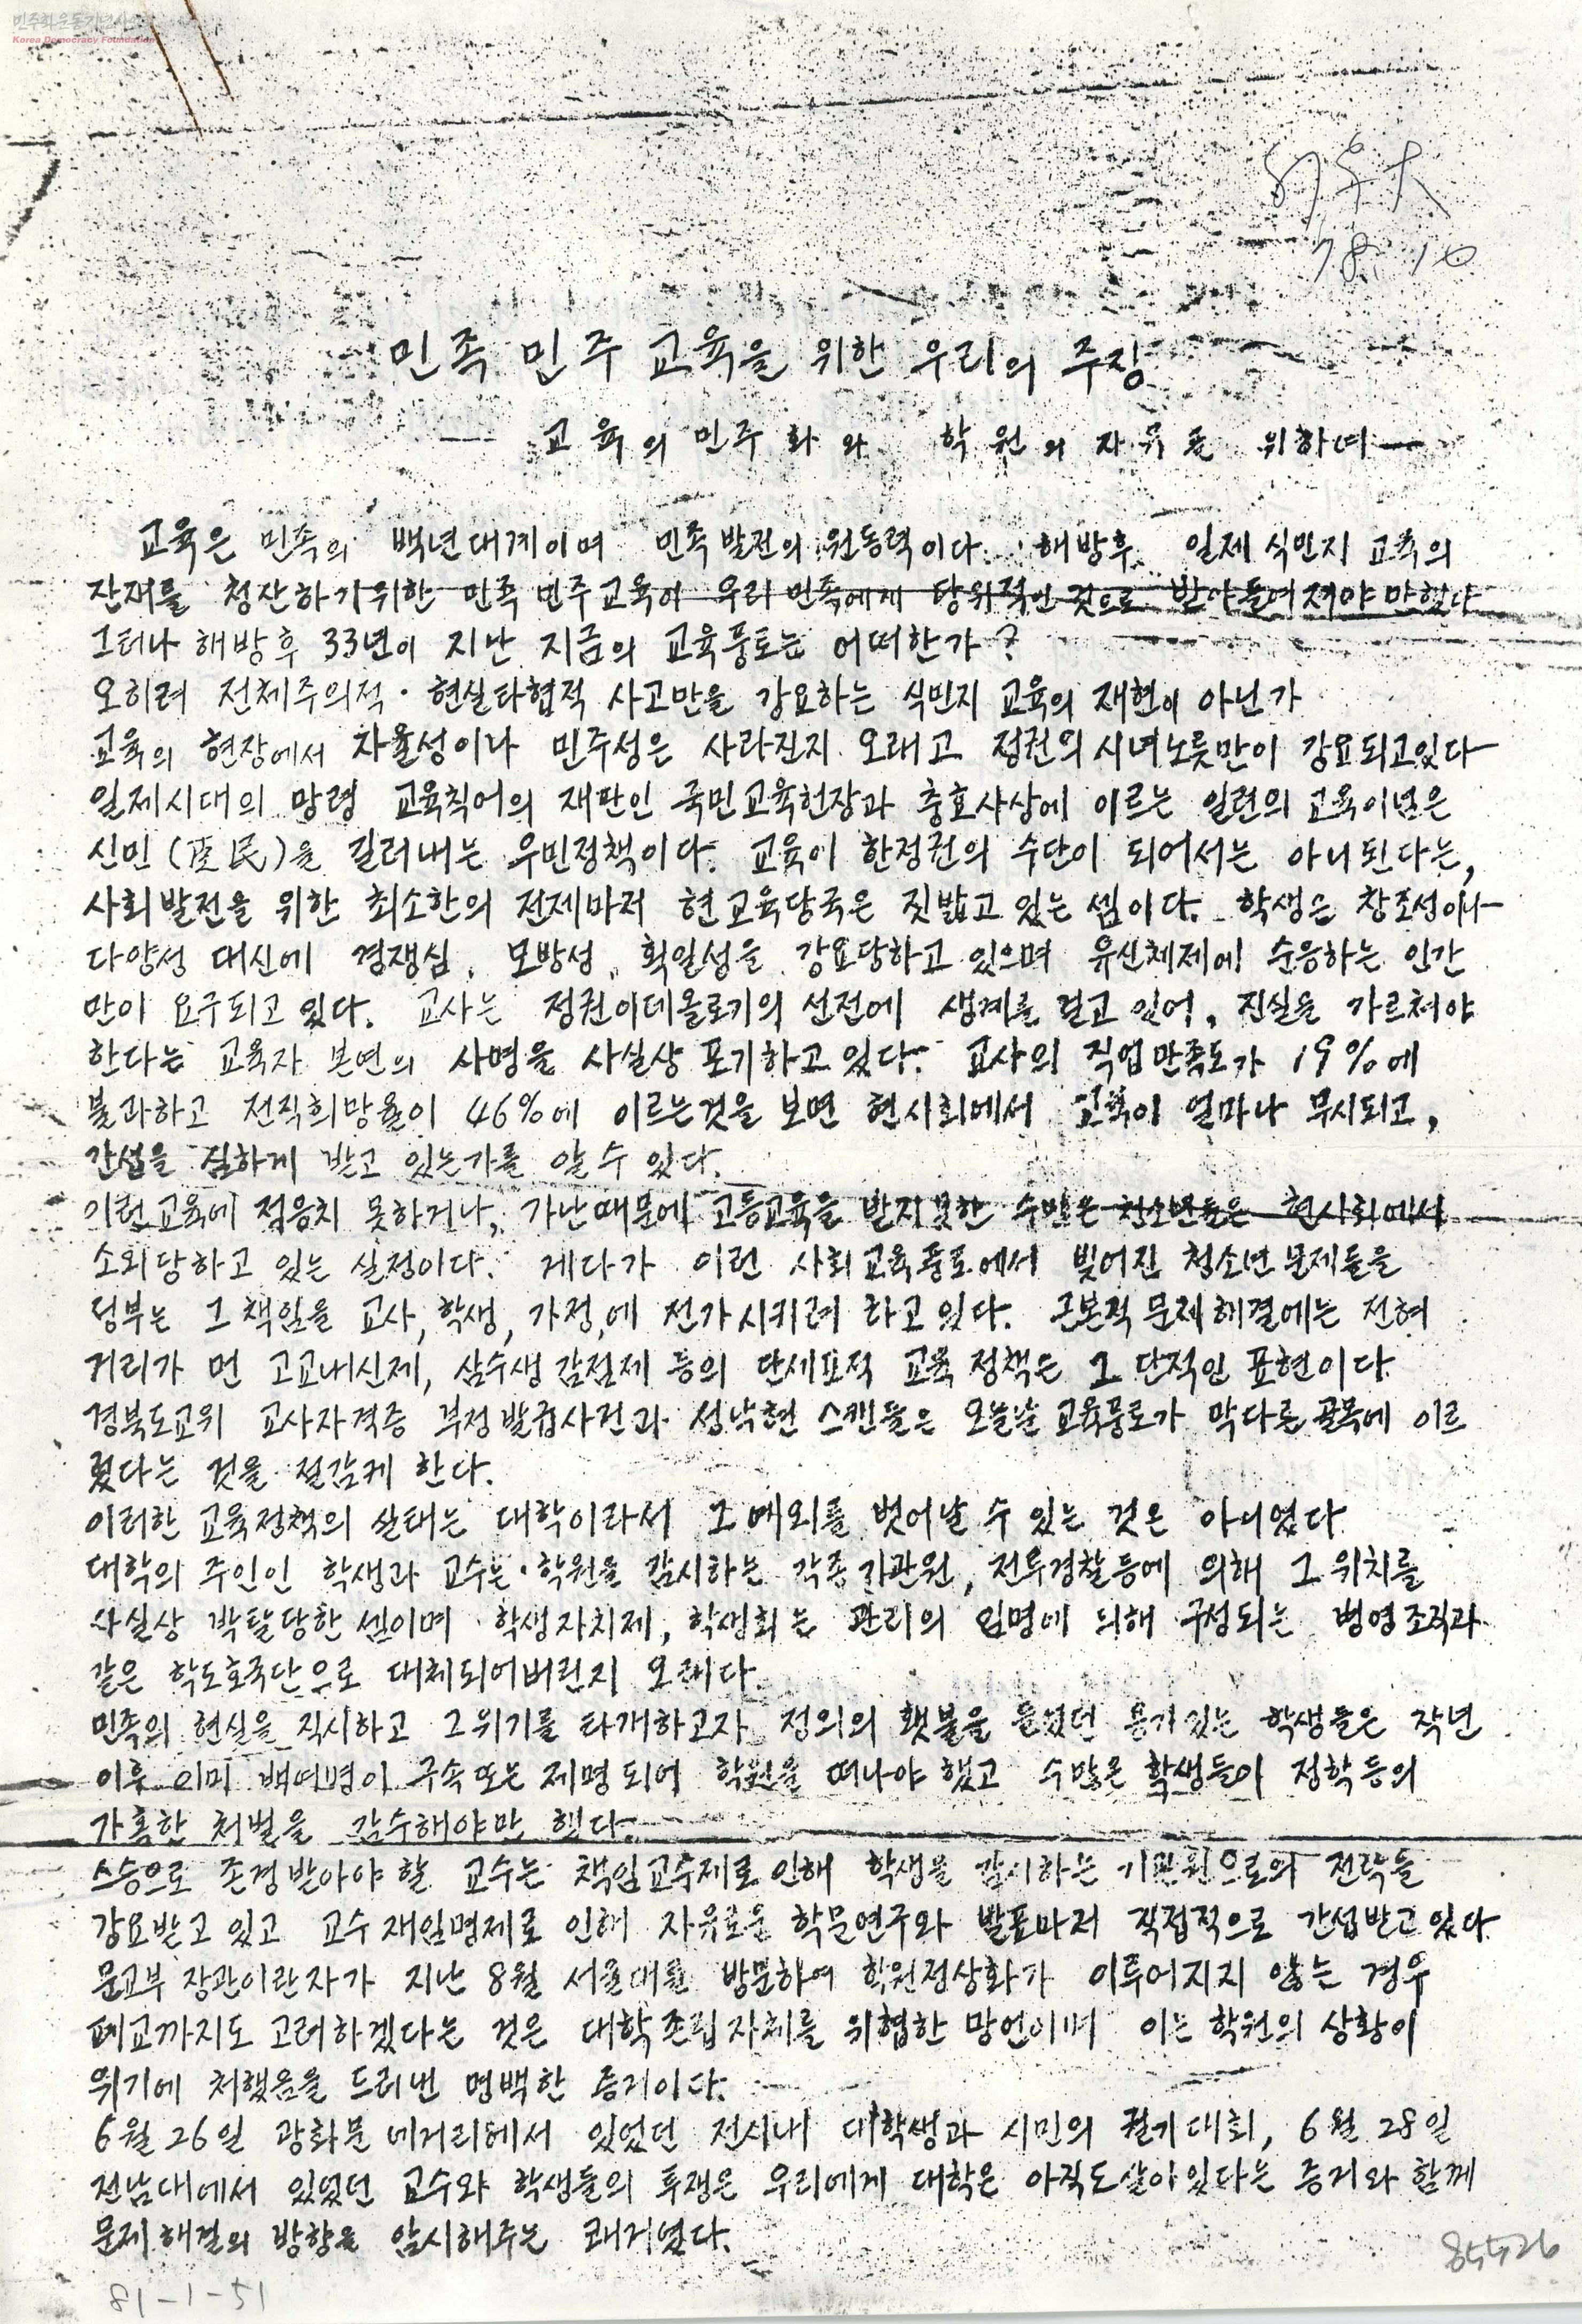 민주화운동기념사업회
Korea Democracy Foundation
78. 10
민족 민주 교육을 위한 우리의 주장
— 교육의 민주화와 학원의 자유를 위하여 —
교육은 민족의 백년대계이며 민족발전의 원동력이다. 해방후 일제 식민지 교육의
잔재를 청산하기위한 민족 민주교육이 우리 민족에게 당위적인 것으로 받아들여져야만했다
그러나 해방후 33년이 지난 지금의 교육풍토는 어떠한가?
오히려 전체주의적·현실타협적 사고만을 강요하는 식민지 교육의 재현이 아닌가
교육의 현장에서 자율성이나 민주성은 사라진지 오래고 정권의 시녀노릇만이 강요되고있다
일제시대의 망령 교육칙어의 재판인 국민교육헌장과 충효사상에 이르는 일련의 교육이념은
신민(臣民)을 길러내는 우민정책이다. 교육이 한정권의 수단이 되어서는 아니된다는,
사회발전을 위한 최소한의 전제마저 현교육당국은 짓밟고 있는 셈이다. 학생은 창조성이나
다양성 대신에 경쟁심, 모방성, 획일성을 강요당하고 있으며 유신체제에 순응하는 인간
만이 요구되고 있다. 교사는 정권이데올로기의 선전에 생계를 걸고 있어, 진실을 가르쳐야
한다는 교육자 본연의 사명을 사실상 포기하고 있다. 교사의 직업만족도가 19%에
불과하고 전직희망율이 46%에 이르는것을 보면 현사회에서 교육이 얼마나 무시되고,
간섭을 심하게 받고 있는가를 알 수 있다.
이런 교육에 적응치 못하거나, 가난때문에 고등교육을 받지못한 수많은 청소년들은 현사회에서
소외당하고 있는 실정이다. 게다가 이런 사회교육풍토에서 빚어진 청소년문제들을
정부는 그 책임을 교사, 학생, 가정,에 전가시키려 하고있다. 근본적 문제해결에는 전혀
거리가 먼 고교내신제, 삼수생 감점제 등의 단세포적 교육정책은 그 단적인 표현이다.
경북도교위 교사자격증 부정발급사건과 성낙현 스캔들은 오늘날 교육풍토가 막다른 골목에 이르
렀다는 것을 절감케 한다.
이러한 교육정책의 실태는 대학이라서 그 예외를 벗어날 수 있는 것은 아니었다
대학의 주인인 학생과 교수는·학원을 감시하는 각종기관원, 전투경찰등에 의해 그 위치를
사실상 박탈당한 셈이며 학생자치제, 학생회는 관리의 임명에 의해 구성되는 병영조직과
같은 학도호국단으로 대체되어버린지 오래다.
민족의 현실을 직시하고 그위기를 타개하고자 정의의 횃불을 들었던 용기있는 학생들은 작년
이후 이미 백여명이 구속또는 제명되어 학원을 떠나야 했고 수많은 학생들이 정학등의
가혹한 처벌을 감수해야만 했다.
스승으로 존경받아야 할 교수는 책임교수제로 인해 학생을 감시하는 기관원으로의 전락을
강요받고 있고 교수재임명제로 인해 자유로운 학문연구와 발표마저 직접적으로 간섭받고있다.
문교부 장관이란자가 지난 8월 서울대를 방문하여 학원정상화가 이루어지지 않는 경우
폐교까지도 고려하겠다는 것은 대학존립자체를 위협한 망언이며 이는 학원의 상황이
위기에 처했음을 드러낸 명백한 증거이다.
6월 26일 광화문 네거리에서 있었던 전시내 대학생과 시민의 궐기대회, 6월 28일
전남대에서 있었던 교수와 학생들의 투쟁은 우리에게 대학은 아직도살아있다는 증거와 함께
문제해결의 방향을 암시해주는 쾌거였다.
81-1-51
855526